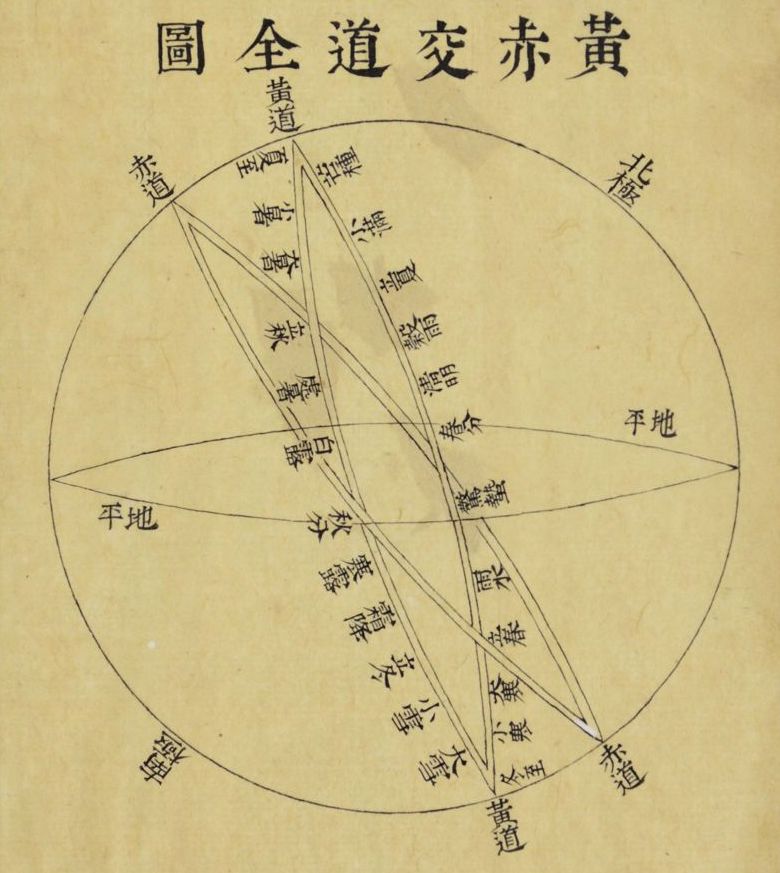 黃赤交道全圖
黃道
赤道
北極
夏至
小暑
大暑
立秋
處暑
白露
秋分
寒露
霜降
立冬
小雪
大雪
芒種
小滿
立夏
穀雨
清明
春分
驚蟄
雨水
立春
大寒
小寒
冬至
地平
地平
南極
赤道
黃道